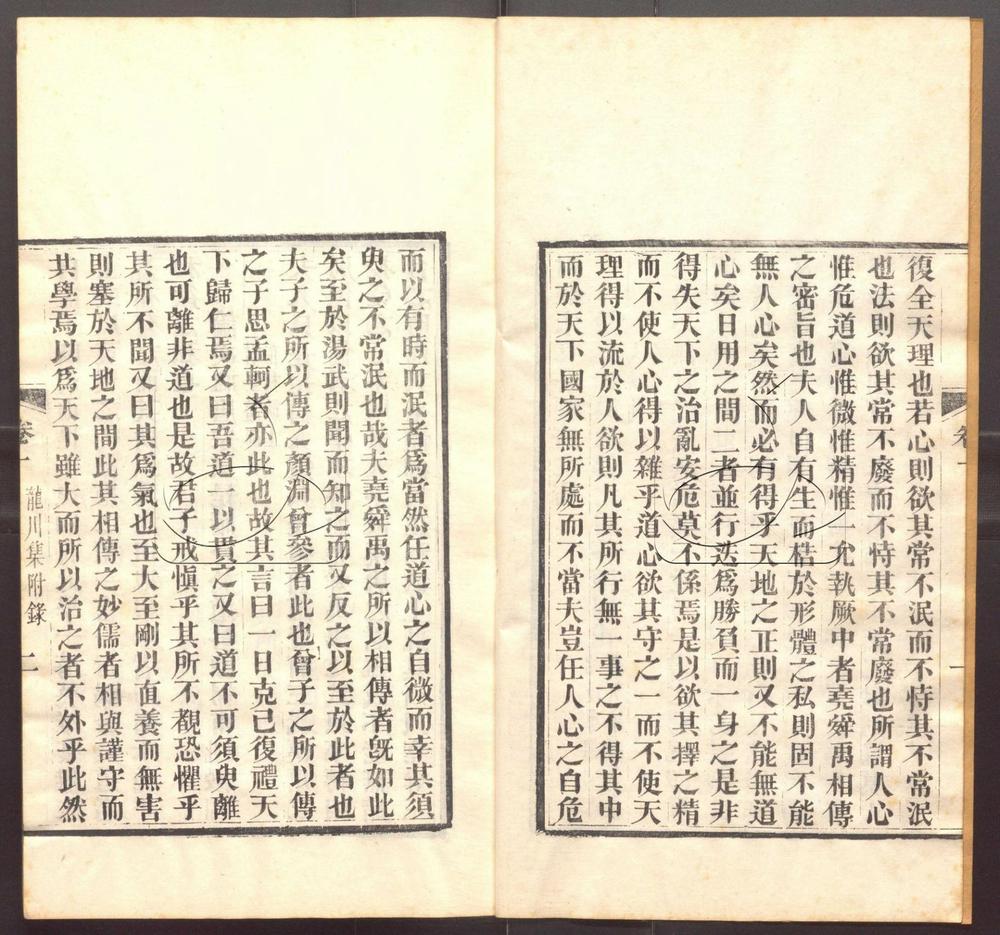 復全天理也若心則欲其常不泯而不恃其不常泯
也法則欲其常不廢而不恃其不常廢也所謂人心
惟危道心惟微惟精惟一允執厥中者堯舜禹相傳
之密旨也夫人自有生而梏於形體之私則固不能
無人心矣然而必有得乎天地之正則又不能無道
心矣日用之間二者並行迭爲勝負而一身之是非
得失天下之治亂安危莫不係焉是以欲其擇之精
而不使人心得以雜乎道心欲其守之一而不使天
理得以流於人欲則凡其所行無一事之不得其中
而於天下國家無所處而不當夫豈任人心之自危
而以有時而泯者爲當然任道心之自微而幸其須
臾之不常泯也哉夫堯舜禹之所以相傳者旣如此
矣至於湯武則聞而知之而又反之以至於此者也
夫子之所以傳之顏淵曾參者此也曾子之所以傳
之子思孟軻者亦此也故其言曰一日克己復禮天
下歸仁焉又曰吾道一以貫之又曰道不可須臾離
也可離非道也是故君子戒愼乎其所不覩恐懼乎
其所不聞又曰其爲氣也至大至剛以直養而無害
則塞於天地之間此其相傳之妙儒者相與謹守而
共學焉以爲天下雖大而所以治之者不外乎此然
卷一
龍川集附錄
二